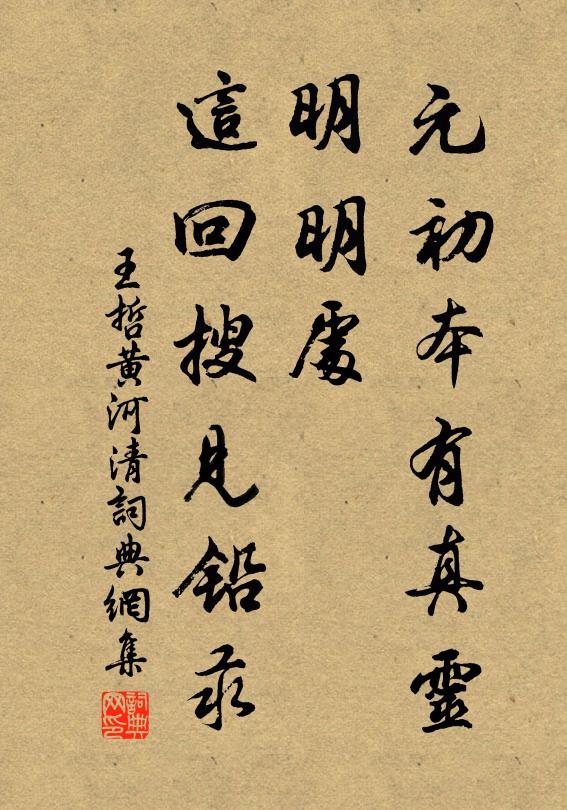 元初本有真靈
明明處
這回搜見鉛汞
王哲黃河清詞典網集
詞典网印